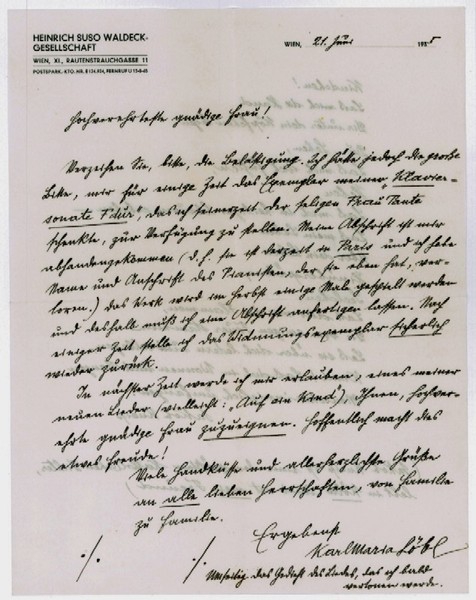 HEINRICH SUSO WALDECK-
GESELLSCHAFT
WIEN, XI., RAUTENSTRAUCHGASSE 11
POSTSPARK.-KTO. NR. FERNRUF U 13-8-45
WIEN, 21. Juni 1935
Hochverehrteste gnädige Frau!
Verzeihen Sie, bitte, die Belästigung. Ich hätte jedoch die große
Bitte, mir für einige Zeit das Exemplar meiner „Klavier-
sonate F dur", das ich seinerzeit der seligen Frau Tante
schenkte, zur Verfügung zu stellen. Meine Abschrift ist mir
abhandengekommen (d. h. sie ist derzeit in Paris und ich habe
Name und Anschrift des Pianisten, der sie eben hat, ver-
loren.) Das Werk wird im Herbst einige Male gespielt werden
und deshalb muß ich eine Abschrift anfertigen lassen. Nach
einiger Zeit stelle ich das Widmungsexemplar sicherlich
wieder zurück.
In nächster Zeit werde ich mir erlauben, eines meiner
neuen Lieder (vielleicht: „Auf ein Kind"), Ihnen, hochver-
ehrte gnädige Frau zuzueignen. Hoffentlich macht dies
etwas Freude!
Viele Handküsse und allerherzlichste Grüße
an alle lieben Herrschaften, von Familie
zu Familie.
Ergebenst
Karl Maria Löbl
./. ./.
Umseitig das Gedicht des Liedes, das ich bald
vertonen werde.